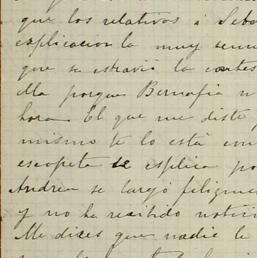 que los relativos á Seba
explicacion la muy senc
que se estravie la contes
Ma porque Bernafia n
hora El que me diste
mismo te lo está con
escopeta se esplica po
Andrea se largó
y no ha recibido notici
Me dices que nadie le